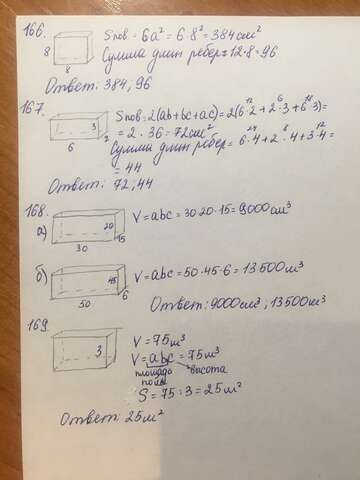 166.
8
8
Sпов = 6a² = 6·8² = 384 см²
Сумма длин ребер = 12·8 = 96
Ответ: 384, 96
167.
3
2
6
Sпов = 2(ab+bc+ac) = 2(6·2+2·3+6·3) =
12 6 18
= 2·36 = 72 см²
Сумма длин ребер = 6·4+2·4+3·4 =
24 8 12
= 44
Ответ: 72, 44
168.
а)
20
15
30
V = abc = 30 20·15 = 9000 см³
б)
45
6
50
V = abc = 50·45·6 = 13500 м³
Ответ: 9000 см³, 13500 м³
169.
3
V = 75 м³
V = abc = 75 м³
площадь высота
пола
S = 75 : 3 = 25 м²
Ответ: 25 м²